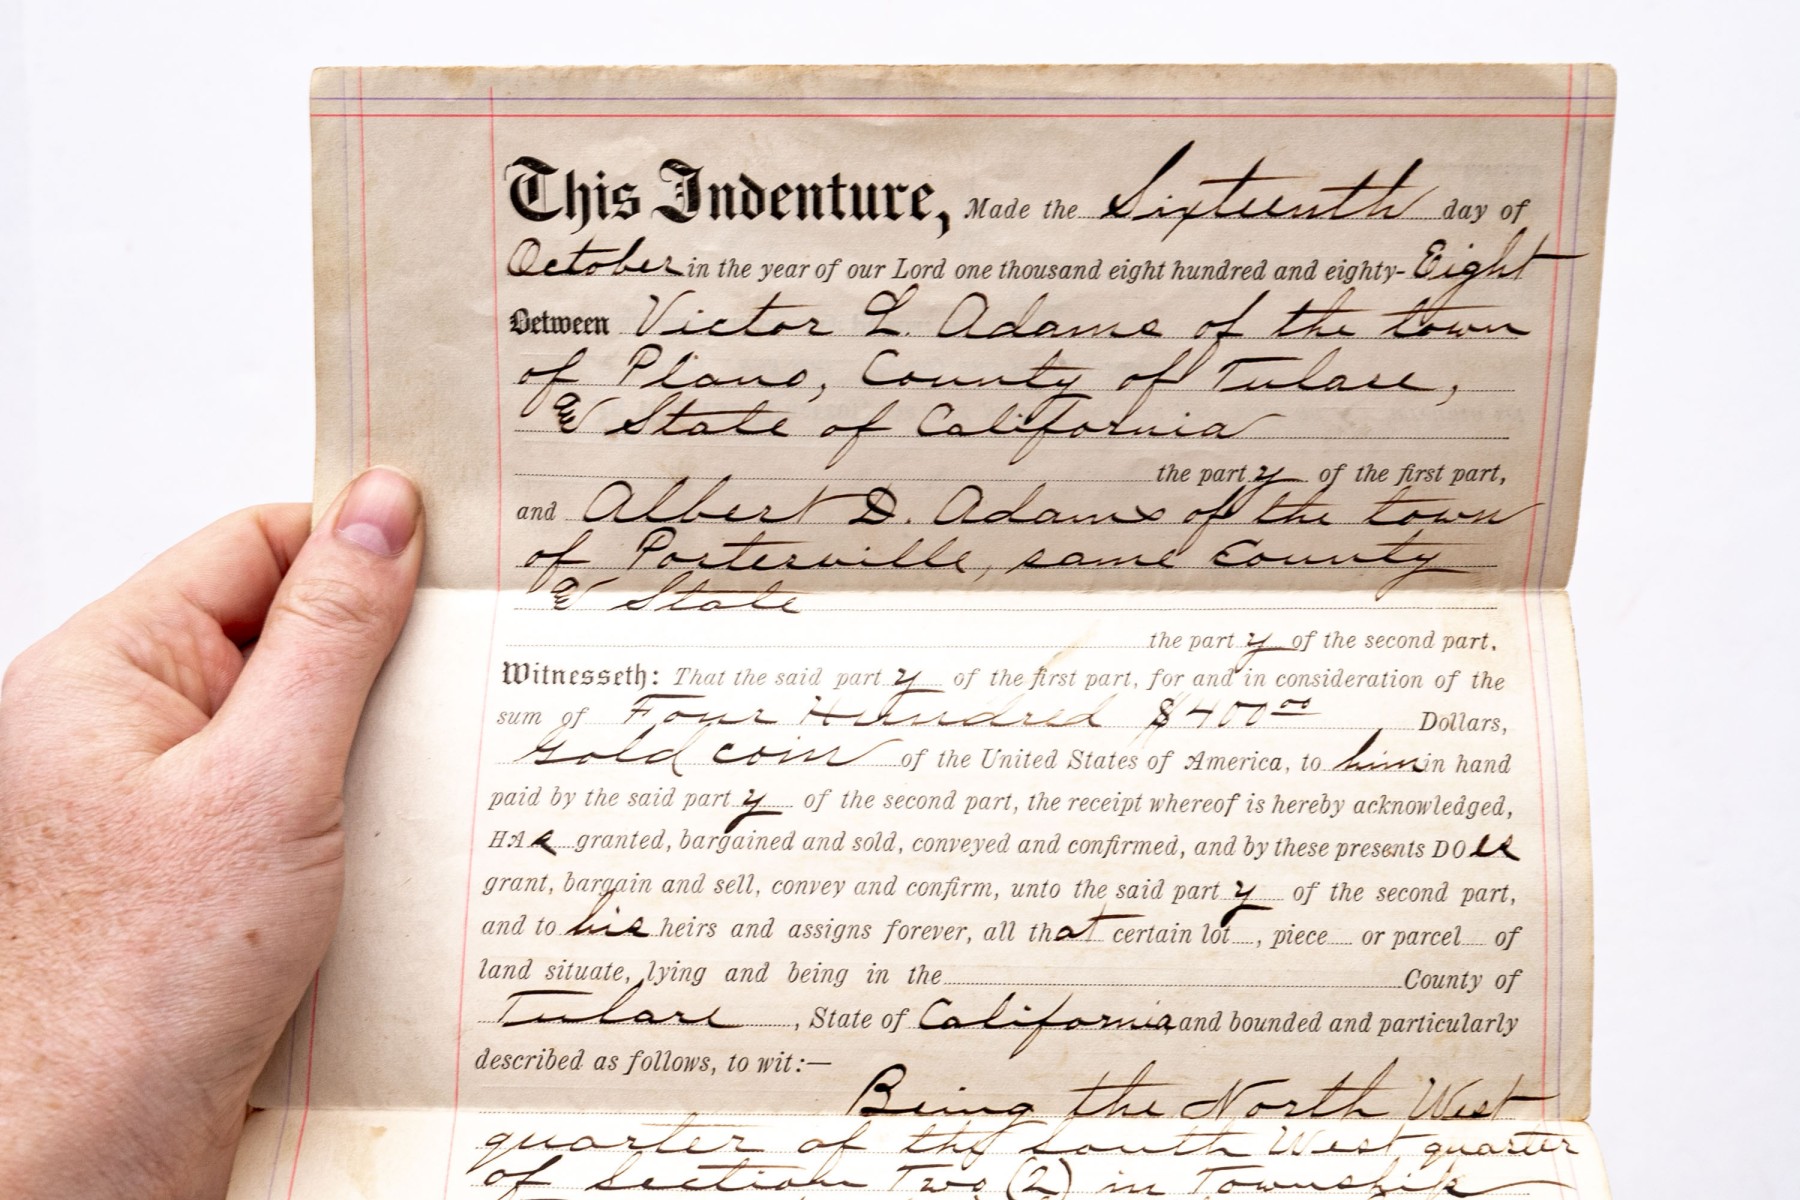 This Indenture, Made the Sixteenth day of
October in the year of our Lord one thousand eight hundred and eighty-Eight
Between Victor L. Adams of the town
of Plano, County of Tulare,
and State of California
the party of the first part,
and Albert D. Adams of the town
of Porterville, same County
and State
the party of the second part,
Witnesseth: That the said party of the first part, for and in consideration of the
sum of Four Hundred $400.00 Dollars,
gold coin of the United States of America, to him in hand
paid by the said party of the second part, the receipt whereof is hereby acknowledged,
HAs granted, bargained and sold, conveyed and confirmed, and by these presents DOes
grant, bargain and sell, convey and confirm, unto the said party of the second part,
and to his heirs and assigns forever, all that certain lot, piece or parcel of
land situate, lying and being in the County of
Tulare, State of California, and bounded and particularly
described as follows, to wit:—
Being the North West
quarter of the South West quarter
of section Two (2) in Township